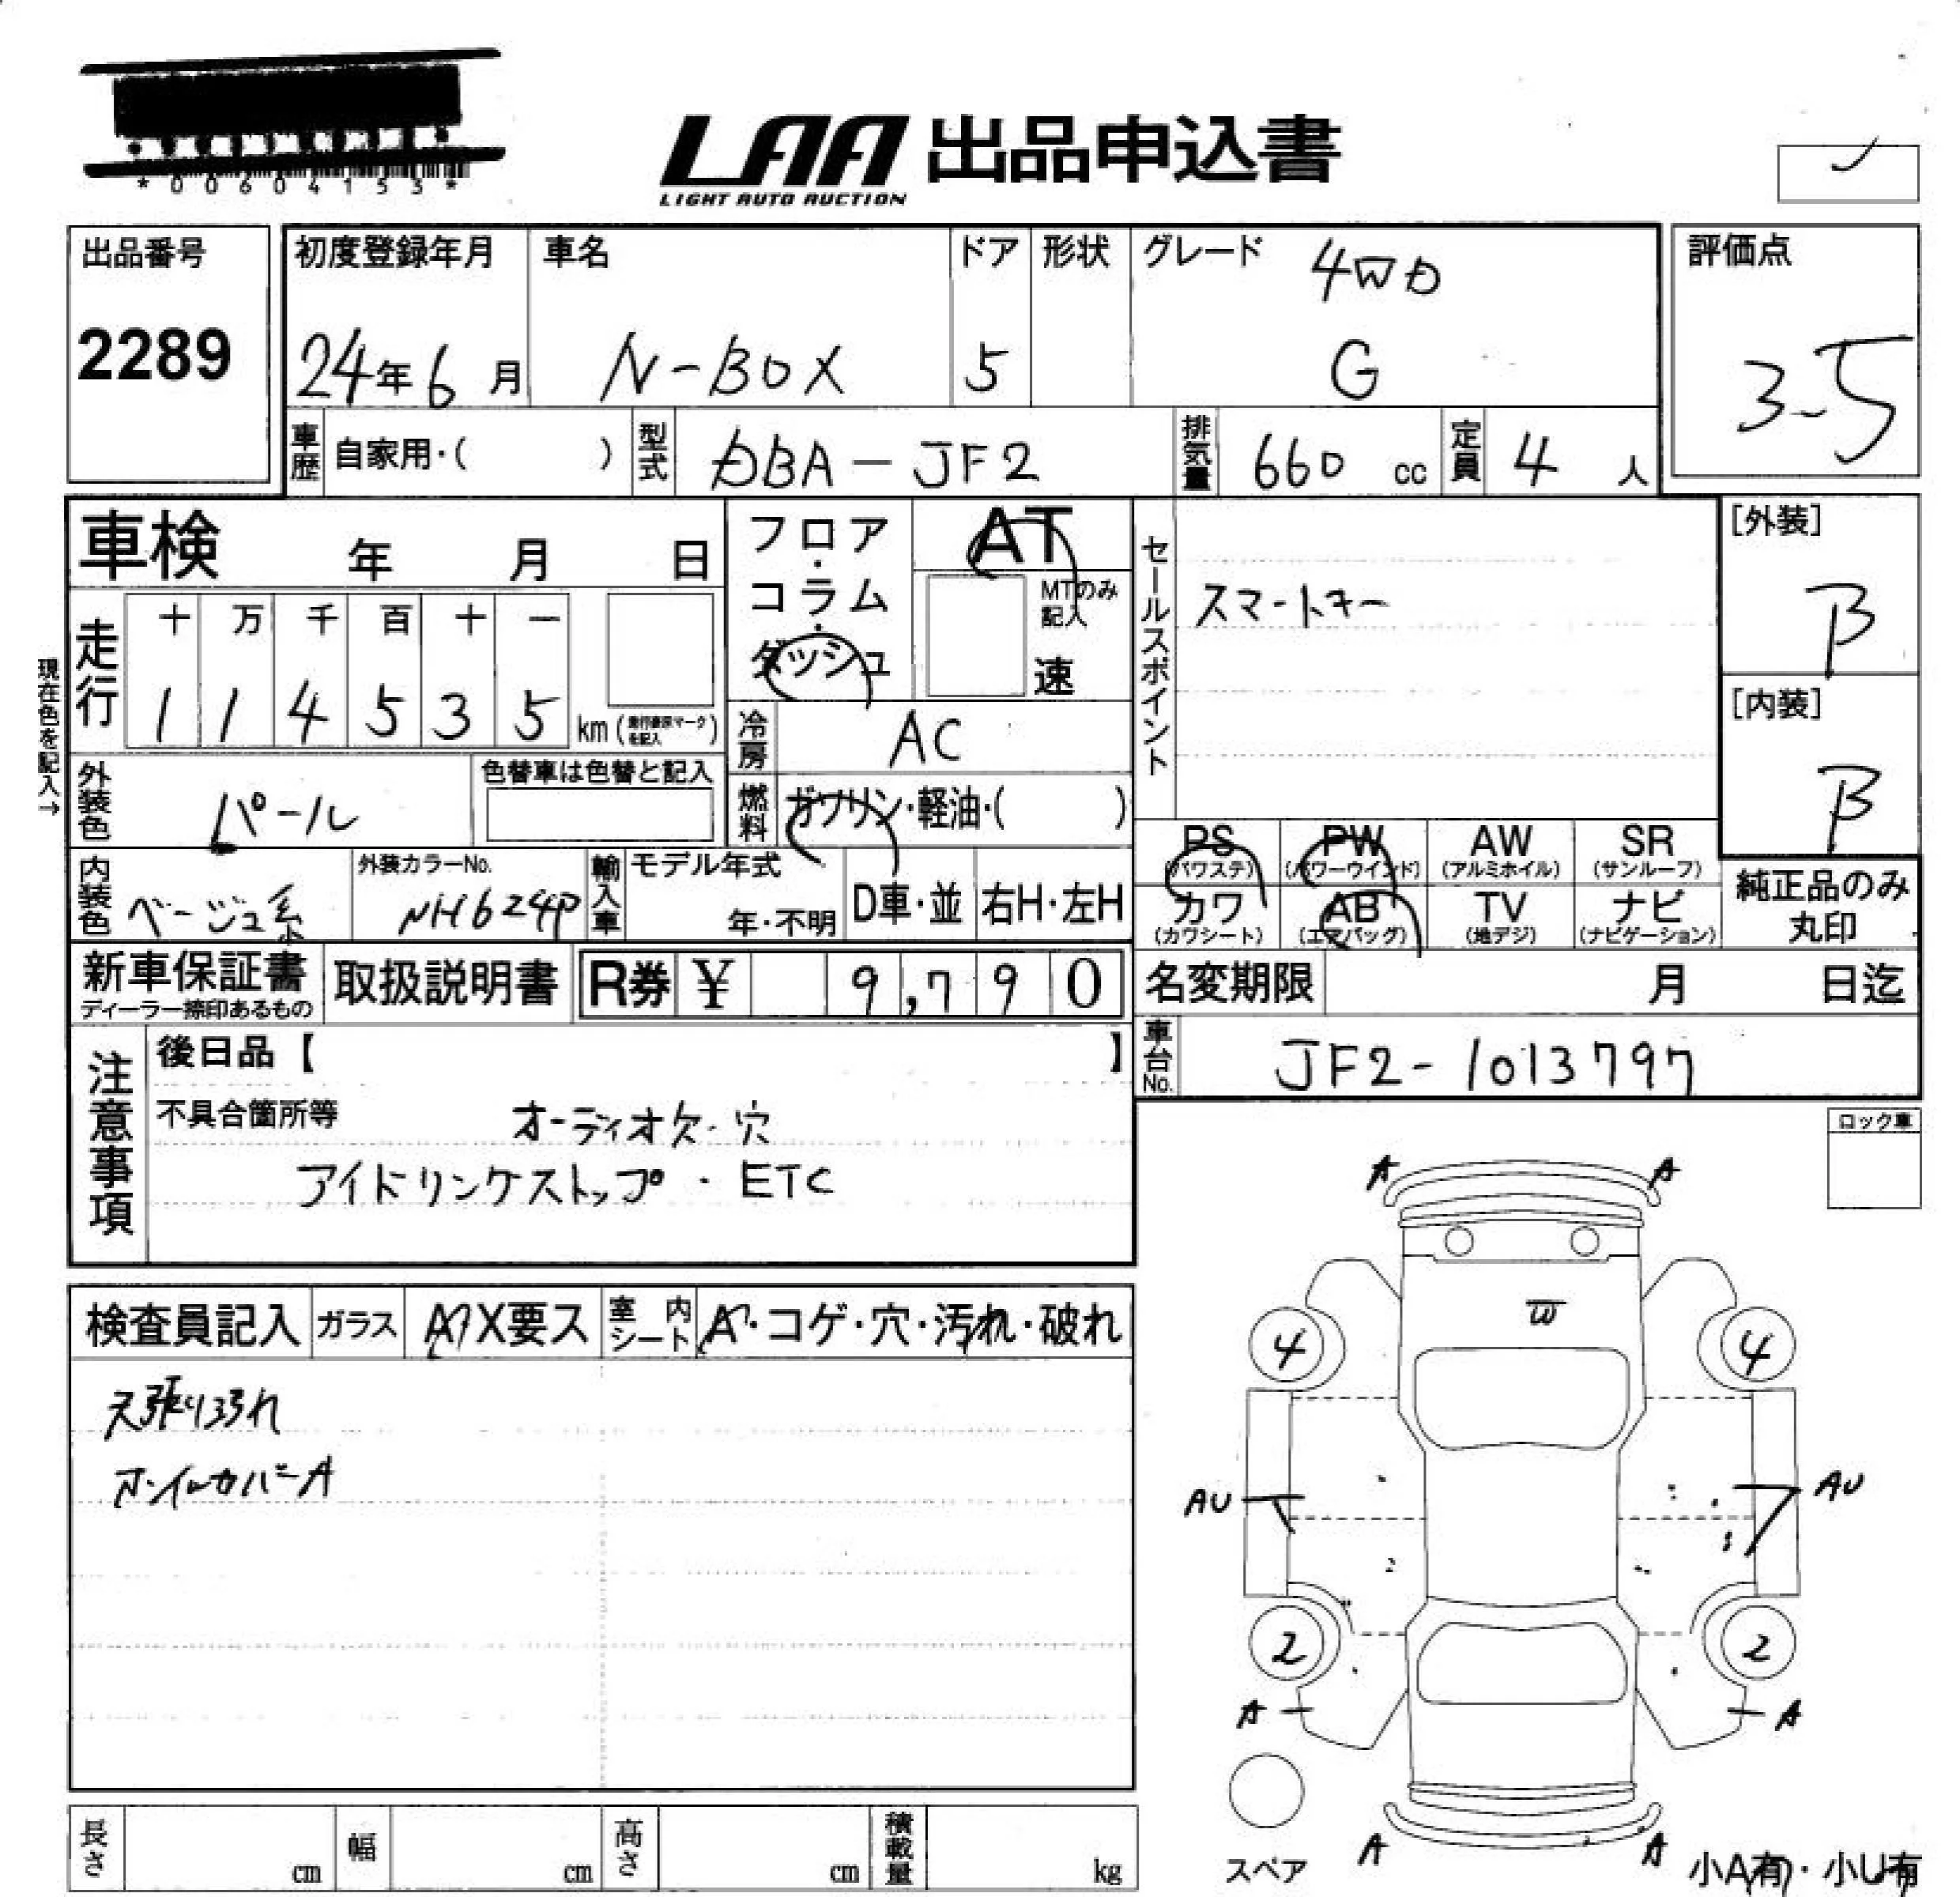 *00604153*
LAA 出品申込書
LIGHT AUTO AUCTION
出品番号
2289
初度登録年月
24年6月
車名
N-BOX
ドア
5
形状
グレード
4WD
G
評価点
3.5
車歴 自家用・( )
型式 DBA-JF2
排気量 660 cc
定員 4 人
車検 年 月 日
フロア・コラム・ダッシュ
AT
MTのみ記入
速
セールスポイント
スマートキー
[外装]
B
[内装]
B
現在色を記入→
走行
十 万 千 百 十 一
1 1 4 5 3 5 km
冷房 AC
外装色 パール
色替車は色替と記入
燃料 ガソリン・軽油・( )
内装色 ベージュ系
外装カラーNo.
NH624P
輸入車
モデル年式
年・不明
D車・並
右H・左H
PS (パワステ)
PW (パワーウインド)
AW (アルミホイル)
SR (サンルーフ)
カワ (カワシート)
AB (エアバッグ)
TV (地デジ)
ナビ (ナビゲーション)
純正品のみ
丸印
新車保証書
ディーラー捺印あるもの
取扱説明書
R券 ¥ 9,790
名変期限 月 日迄
車台No. JF2-1013797
注意事項
後日品【 】
不具合箇所等
オーディオ欠・穴
アイドリングストップ・ETC
ロック車
検査員記入
ガラス A X要ス
室内シート A・コゲ・穴・汚れ・破れ
天張り汚れ
ホイルカバーA
A A
W
4 4
AU AU
2 2
A A
スペア
A A
小A有・小U有
長さ cm
幅 cm
高さ cm
積載量 kg